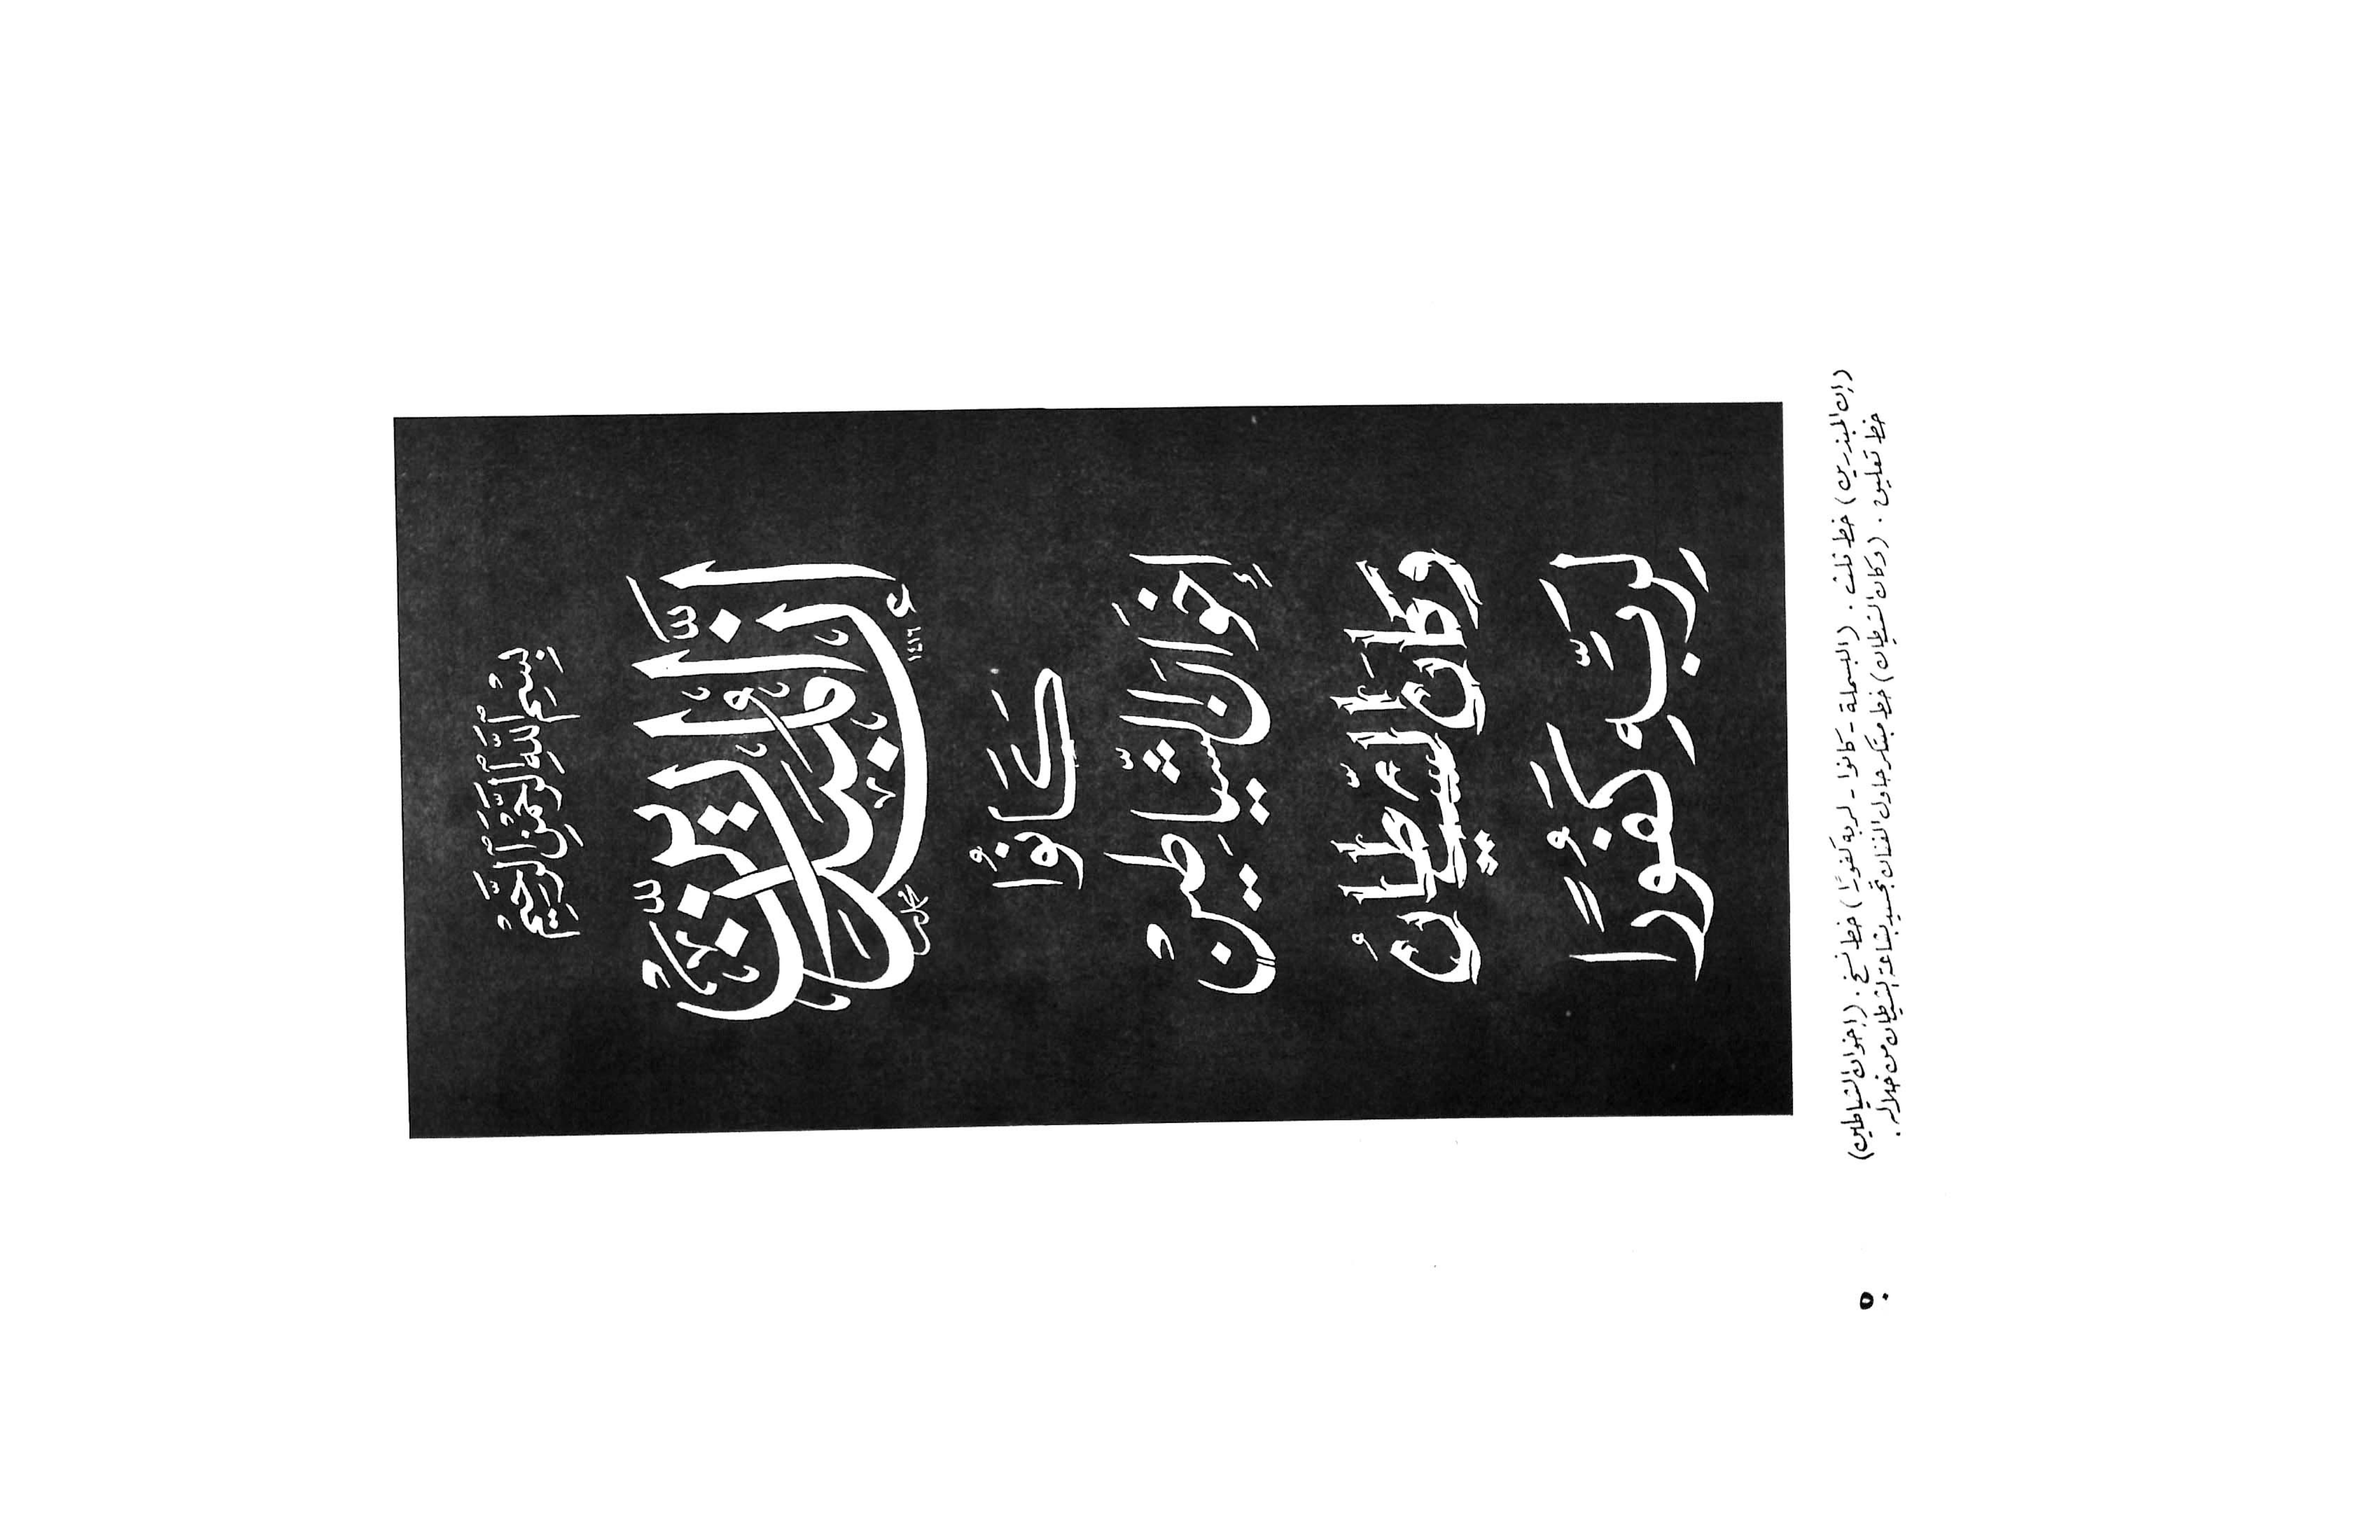 بِسْمِ ٱللَّهِ ٱلرَّحْمَٰنِ ٱلرَّحِيمِ
إِنَّ ٱلْمُبَذِّرِينَ
محمد ١٤١٦
كَانُوا
إِخْوَانَ الشَّيَاطِينَ
وكَانَ الشَّيْطَانُ
لِرَبِّهِ كَفُورًا
(إن المبذرين) خط ثلث. (البسملة - كانوا - لربه كفورًا) خط نسخ. (إخوان الشياطين)
خط تعليق. (وكان الشيطان) خط مبتكر حاول الفنان تجسيد بشاعة الشيطان من خلاله.
٥٠